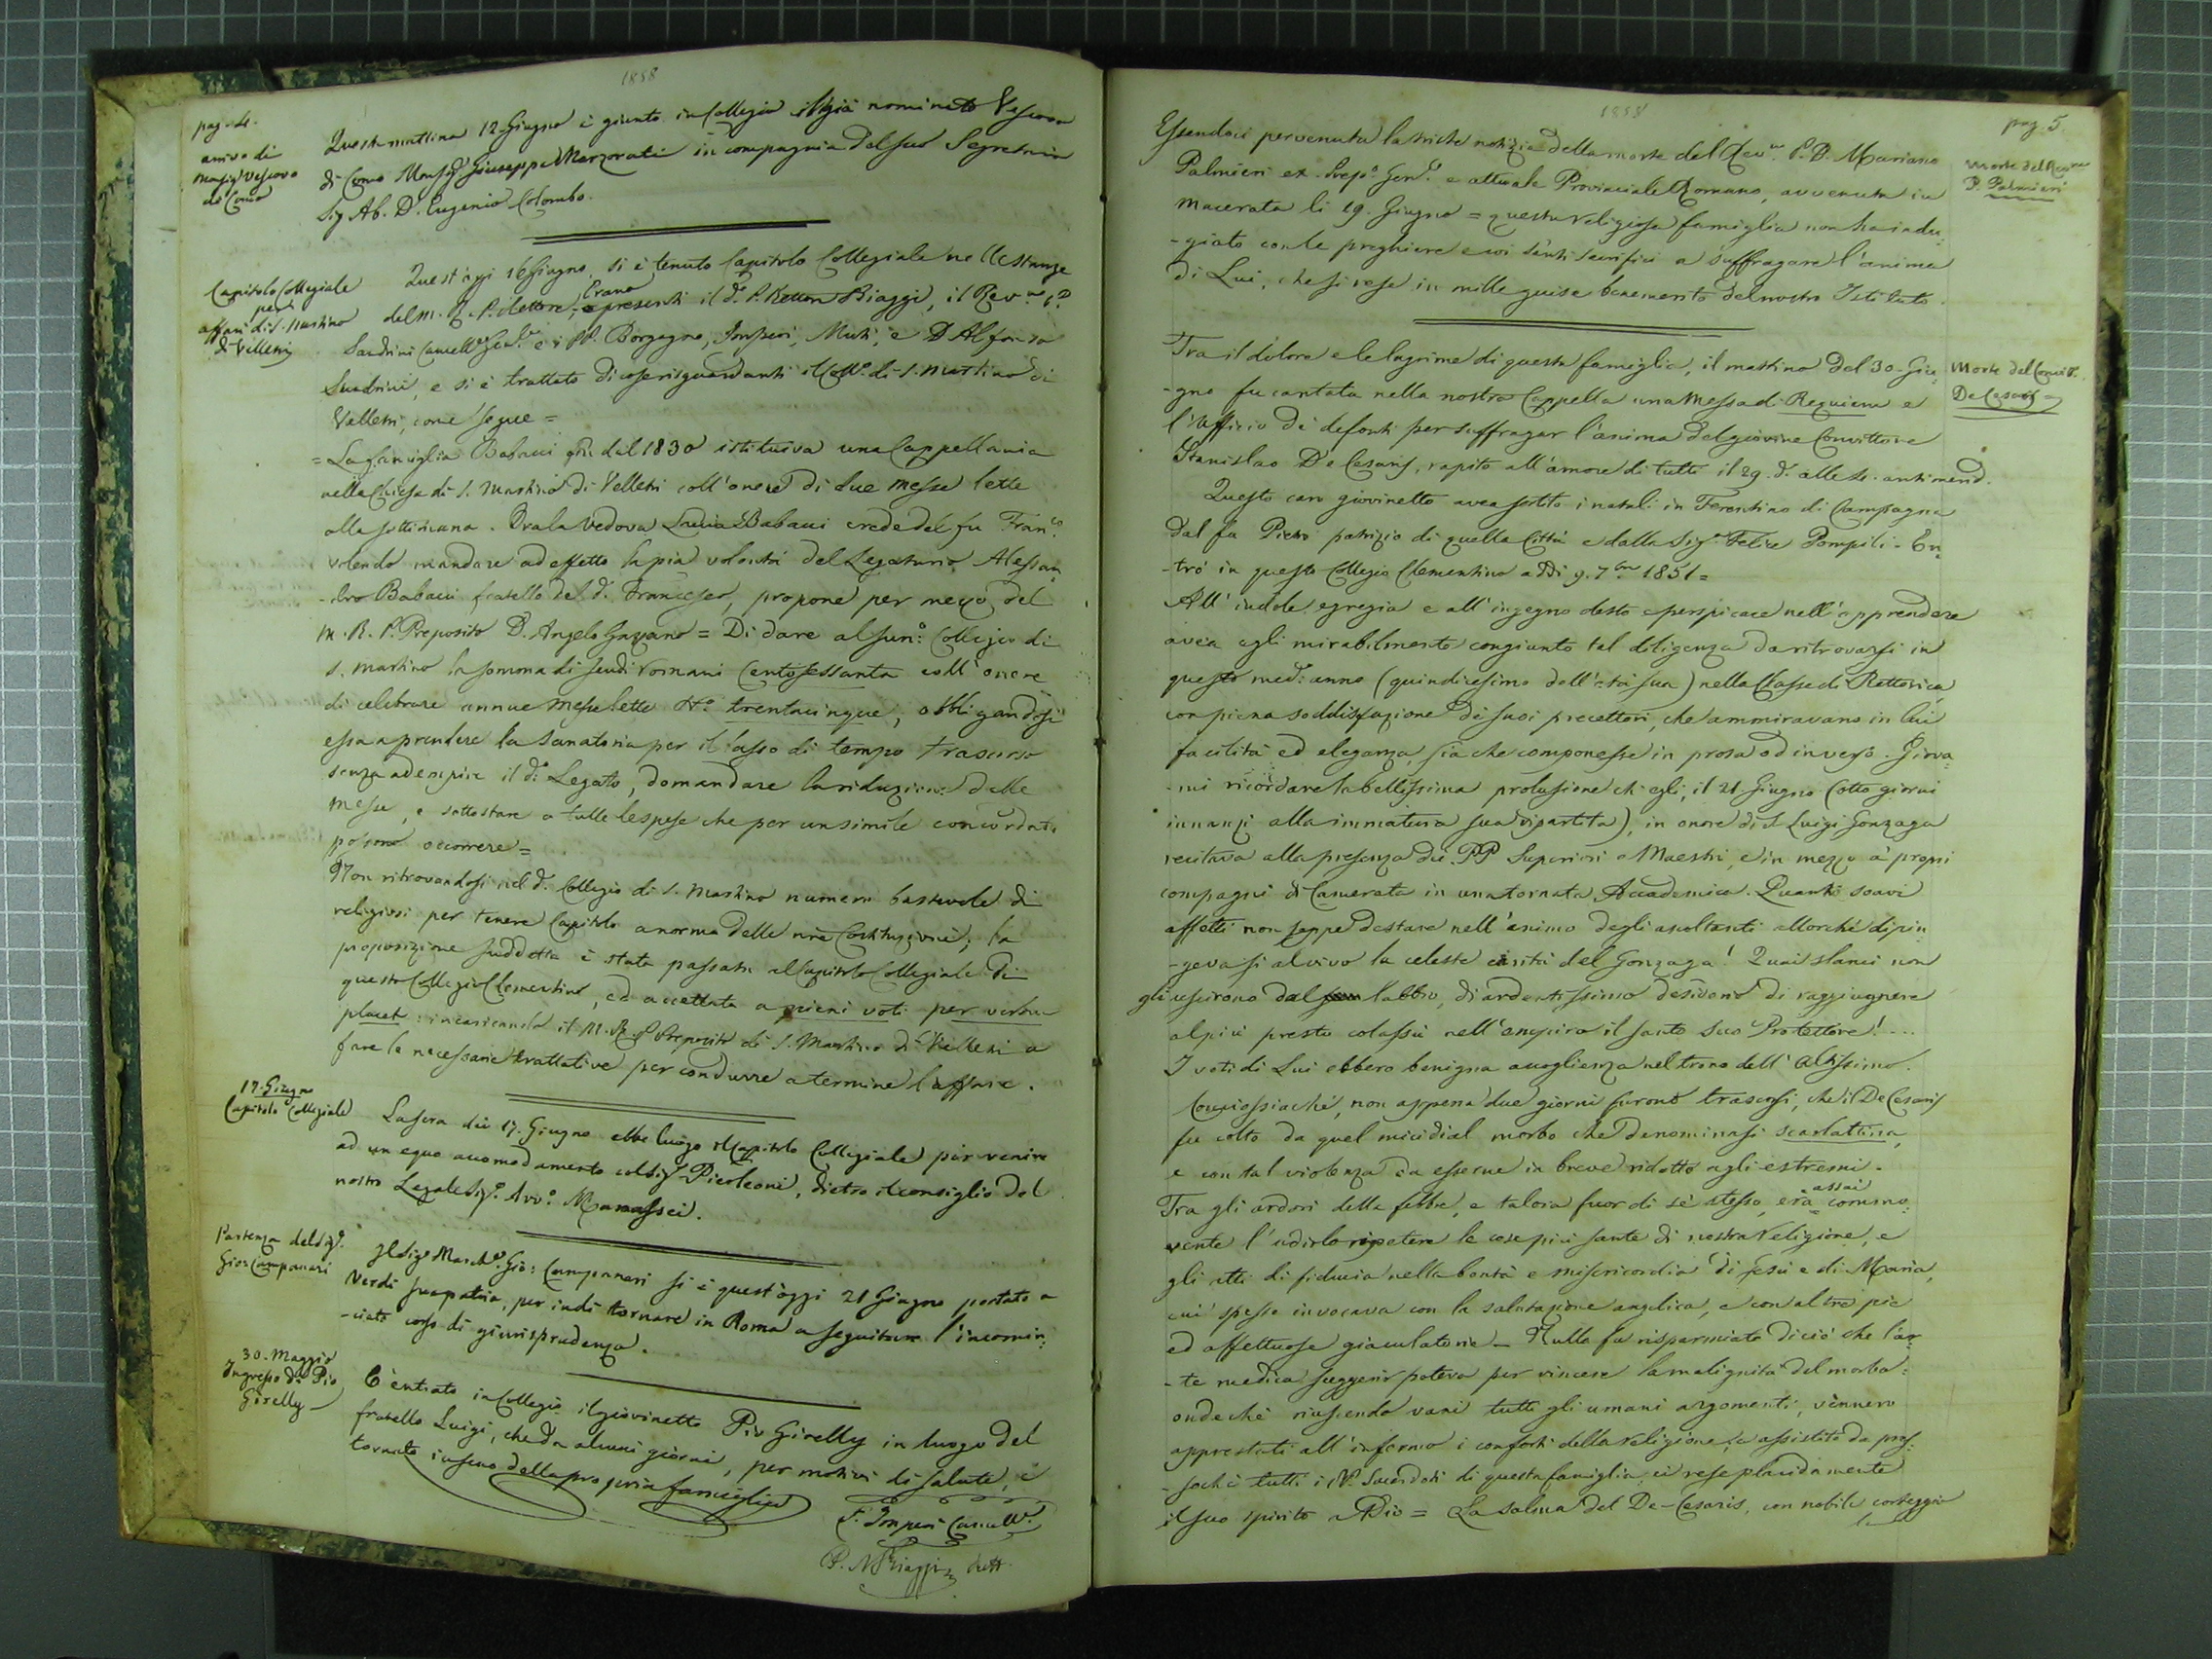 1858
pag. 4.
arrivo di
Monsigr Vescovo
di Como
Questa mattina 12. Giugno è giunto in Collegio il già nominato Vescovo
di Como Monsigr Giuseppe Marzorati in compagnia del suo Segretario
Sig Ab. D. Eugenio Colombo.
Capitolo Collegiale
per
affari di S. Martino
di Velletri
Quest'oggi 16 Giugno, si è tenuto Capitolo Collegiale nelle stanze
del M. R. P. Rettore, Erano presenti il do P. Rettore Biaggi, il Revmo P. D.
Sandrini Cancellre Genle e i PP. Borgogno, Imperi, Muti, e D Alfonso
Sandrini, e si è trattato di cose risguardanti il Collo di S. Martino di
Velletri, come segue =
= La famiglia Babaui fin dal 1830 istituiva una Cappellania
nella Chiesa di S. Martino di Velletri coll'onere di due messe lette
alla settimana. Ora la Vedova Babaui erede del fu Franco
volendo mandare ad effetto la pia volontà del Legatario Alessan-
-dro Babaui fratello del do Francesco, propone per mezzo del
M. R. P. Preposito D. Angelo Gazzano = Di dare al sunno Collegio di
S. Martino la somma di scudi romani Centosessanta coll'onere
di celebrare annue messe lette No trentacinque, obbligandosi
essa a prendere la sanatoria per il lasso di tempo trascorso
senza adempire il do Legato, domandare la riduzione delle
messe, e sottostare a tutte le spese che per un simile concordato
possono occorrere =
Non ritrovandosi nel do Collegio di S. Martino numero bastevole di
religiosi per tenere Capitolo a norma delle nre Costituzioni, la
proposizione suddetta è stata passata al Capitolo Collegiale di
questo Collegio Clementino, ed accettata a pieni voti per verbum
placet: incaricando il M. R. P. Preposito di S. Martino di Velletri a
fare le necessarie trattative per condurre a termine l'affare.
17. Giugno
Capitolo Collegiale
La sera dei 17. Giugno ebbe luogo il Capitolo Collegiale per venire
ad un equo accomodamento col Sig Picoleoni, dietro il consiglio del
nostro Legale Sigr Avvo Manassei.
Partenza del Sigr
Gio: Campanari
Il Sigr Marche Gio: Campanari si è quest'oggi 21 Giugno portato a
Veroli sua patria, per indi tornare in Roma a seguitare l'incomin-
-ciato corso di giurisprudenza.
30. Maggio
Ingresso di Pio
Girelly
È entrato in Collegio il giovinetto Pio Girelly in luogo del
fratello Luigi, che da alcuni giorni, per motivi di salute, è
tornato in seno della propria famiglia
F. Imperi Cancellre
P. N Biaggi Rett.
1858
pag. 5.
Morte del Revmo
P. Palmieri
Essendoci pervenuta la triste notizia della morte del Revmo P. D. Mariano
Palmieri ex-Prepo Genle e attuale Provinciale Romano, avvenuta in
Macerata li 19. Giugno = questa religiosa famiglia non ha indu-
-giato con le preghiere e coi santi sacrifici a suffragare l'anima
di Lui, che si rese in mille guise benemerito del nostro Istituto.
Morte del Convitt.
De Cesaris
Tra il dolore e le lagrime di questa famiglia, il mattino del 30. Giu-
-gno fu cantata nella nostra Cappella una Messa di Requiem e
l'uffizio de' defonti per suffragar l'anima del giovine Convittore
Stanislao De Cesaris, rapito all'amore di tutti il 29. do alle antimerid.
Questo caro giovinetto avea sortito i natali in Ferentino di Campagna
dal fu Pietro patrizio di quella Città e dalla Siga Felice Pompili - En-
-trò in questo Collegio Clementino addì 9. 7bre 1851 =
All'indole egregia e all'ingegno desto e perspicace nell'apprendere
avea egli mirabilmente congiunto tal diligenza da ritrovarsi in
questo medo anno (quindicesimo dell'età sua) nella Classe di Rettorica
con piena soddisfazione de' suoi precettori, che ammiravano in lui
facilità ed eleganza, sia che componesse in prosa od in verso. Giova-
-mi ricordare la bellissima prolusione ch'egli, il 21. Giugno (otto giorni
innanzi alla immatura sua dipartita), in onore di S. Luigi Gonzaga
recitava alla presenza dei PP Superiori e Maestri, e in mezzo a' propri
compagni di Camerata in una tornata Accademica. Quanti soavi
affetti non seppe destare nell'animo degli ascoltanti allorchè dipin-
-geva sì al vivo la celeste carità del Gonzaga! Quai slanci non
gli uscirono dal labbro, di ardentissimo desiderio di raggiugnere
al più presto colassù nell'empiro il santo suo Protettore!...
I voti di Lui ebbero benigna accoglienza nel trono dell'Altissimo.
Conciossiachè, non appena due giorni furono trascorsi, che il De Cesaris
fu colto da quel micidial morbo che denominasi scarlattina,
e con tal violenza da esserne in breve ridotto agli estremi.
Tra gli ardori della febbre, e talora fuor di sè stesso, era assai commo-
vente l'udirlo ripetere le cose più sante di nostra religione, e
gli atti di fiducia nella bontà e misericordia di Gesù e di Maria,
cui spesso invocava con la salutazione angelica, e con altre pie
ed affettuose giaculatorie - Nulla fu risparmiato di ciò che l'ar-
-te medica suggerir poteva per vincere la malignità del morbo:
ondechè riuscendo vani tutti gli umani argomenti, vennero
apprestati all'infermo i conforti della religione, e assistito da pres-
-sochè tutti i RR. Sacerdoti di questa famiglia ei rese placidamente
il suo spirito a Dio = La salma del De-Cesaris, con nobile corteggio